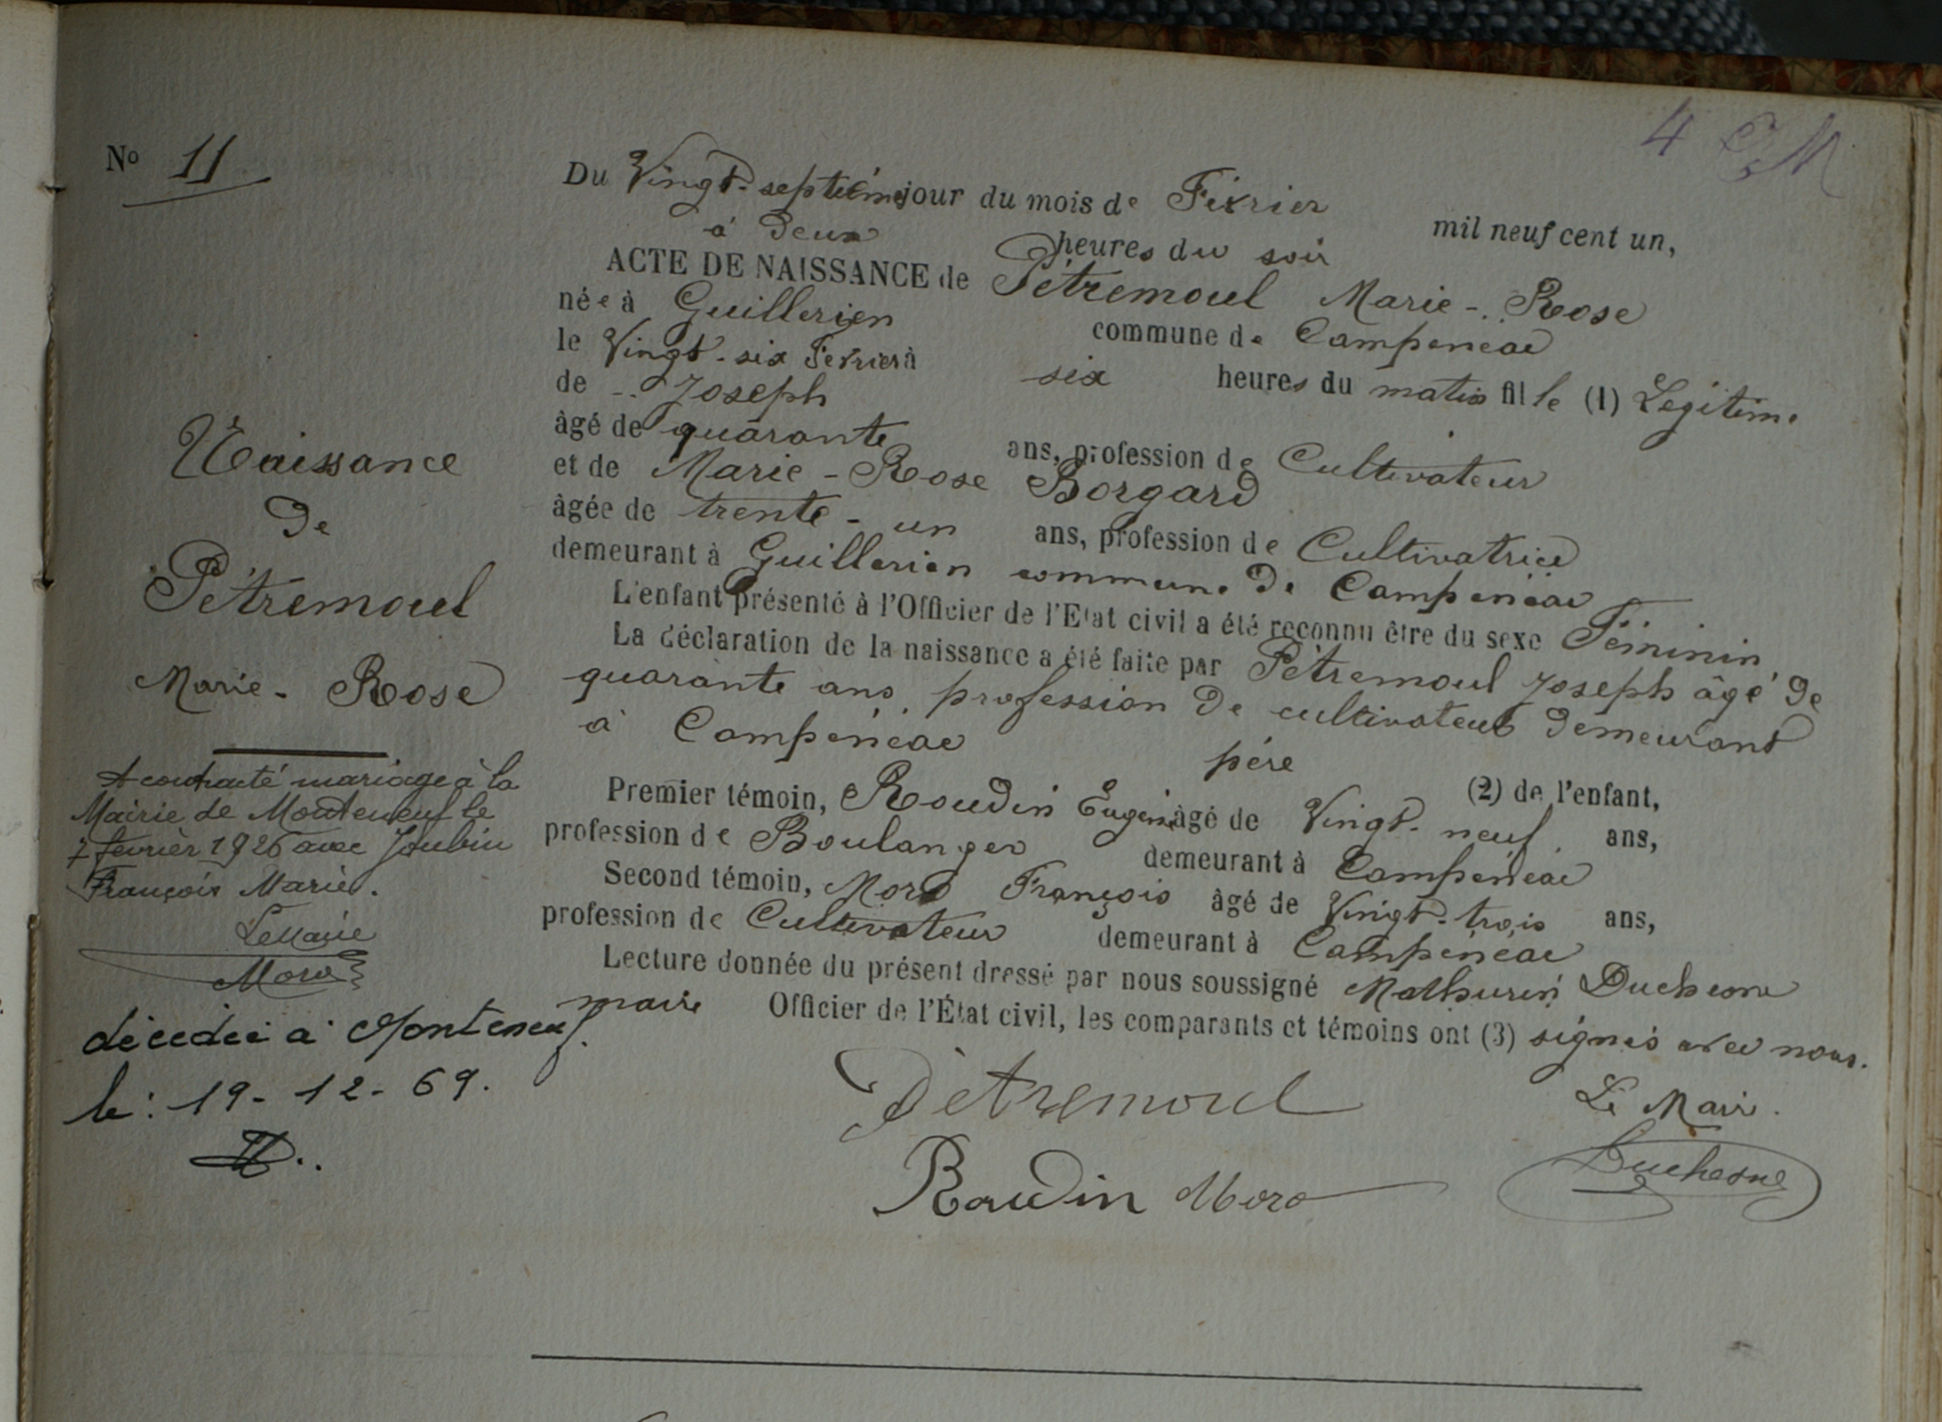 4
No 11
Du Vingt-septième jour du mois de Février mil neuf cent un,
à deux heures du soir
ACTE DE NAISSANCE de Pétremoul Marie-Rose
née à Guillerien commune de Campénéac
le Vingt-six Février à six heures du matin fille (1) Légitime
de Joseph
âgé de quarante ans, profession de Cultivateur
et de Marie-Rose Borgard
âgée de trente-un ans, profession de Cultivatrice
demeurant à Guillerien commune de Campénéac
L'enfant présenté à l'Officier de l'Etat civil a été reconnu être du sexe Féminin
La déclaration de la naissance a été faite par Pétremoul Joseph âgé de
quarante ans, profession de cultivateur demeurant
à Campénéac père (2) de l'enfant,
Premier témoin, Roudin Eugène âgé de Vingt-neuf ans,
profession de Boulanger demeurant à Campénéac
Second témoin, Moro François âgé de Vingt-trois ans,
profession de Cultivateur demeurant à Campénéac
Lecture donnée du présent dressé par nous soussigné Mathurin Duchesne
maire Officier de l'État civil, les comparants et témoins ont (3) signés avec nous.
Pétremoul
Le Maire.
Roudin Moro
Duchesne
Naissance
De
Pétremoul
Marie-Rose
A contracté mariage à la
Mairie de Monteneuf le
7 février 1926 avec Joubin
François Marie.
Le Maire
Moro
décédée à Monteneuf.
le: 19-12-69.